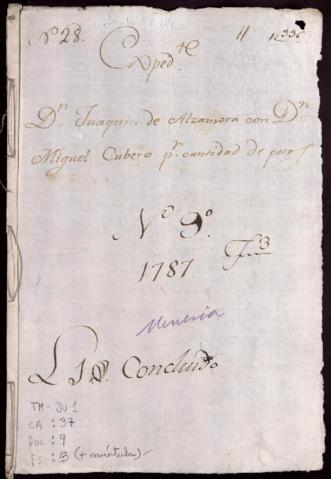 Nº 28.
11
Exped.te
Dn. Juaquin de Alzamora con Dn.
Miguel Cubero pr. cantidad de pesos
Nº 9º
1787
Mineria
Concluido
TM-JU1
CA: 37
DOC: 9
FS: 3 (+ carátula)